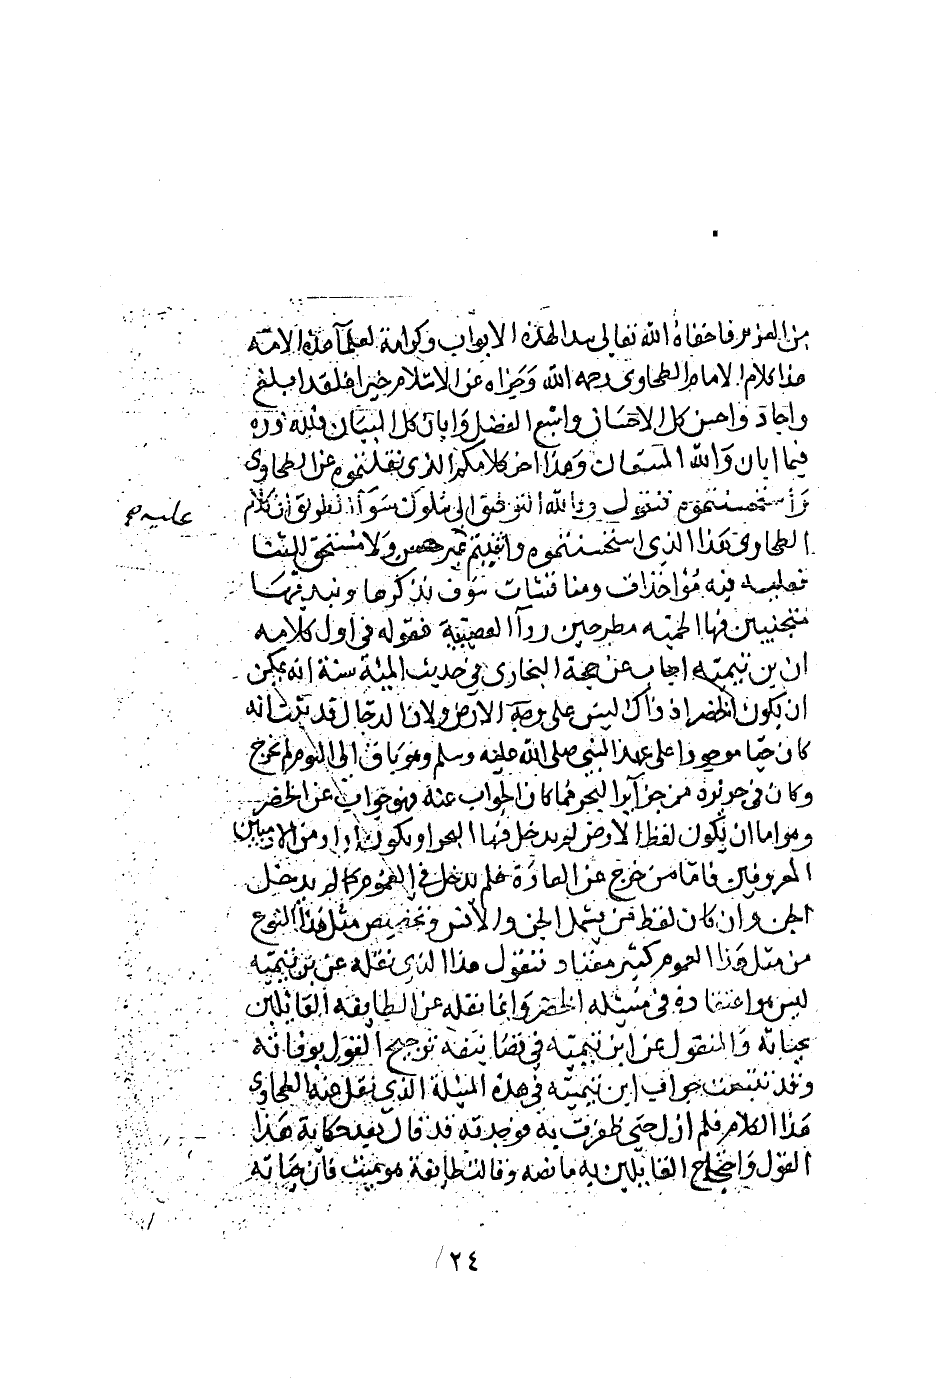 من المؤمر فاخفاه الله تعالى بهذه الابواب وكرامة لعلماء هذه الامة
هذا كلام الامام الطحاوى رحمه الله وجزاه عن الاسلام خيرا فلقد ابلغ
واجاد واحسن كل الاحسان واشبع الفصل وابان كل البيان فلله دره
فيما ابان والله المستعان وهذا اخر كلامكم الذى نقلتموه عن الطحاوى
واستحسنتموه فنقول وبالله التوفيق الى سلوك سواء الطريق ان كلام
الطحاوى هذا الذى استحسنتموه واثنيتم غير حسن ولا مستحق للثنا
عليه صح
فعليه فيه مؤاخذات ومناقشات سوف نذكرها ونبديها
متجنبين فيها الحمية مطرحين رداء العصبية فقوله فى اول كلامه
ان بن تيمية اجاب عن حجة البخارى فى حديث المئة سنة انه يمكن
ان يكون الخضر اذ ذاك ليس على وجه الارض ولان الدجال قد ثبت انه
كان حيا موجودا على عهد النبى صلى الله عليه وسلم وهو باق الى اليوم لم يخرج
وكان فى جزيرة من جزاير البحر فما كان الجواب عنه فهو جواب عن الخضر
وهو اما ان يكون لفظ الارض لم يدخل فيها البحر او يكون اراد من الادميين
المعروفين فاما من خرج عن العادة فلم يدخل فى العموم كما لم يدخل
الجن وان كان لفظ من يشمل الجن والانس وتخصيص مثل هذا النوع
من مثل هذا العموم كثير معتاد فنقول هذا الذى نقله عن بن تيمية
ليس هو اعتقاده فى مسئلة الخضر وانما نقله عن الطايفة القايلين
بحياته والمنقول عن ابن تيمية فى تصانيفه ترجيح القول بوفاته
وقد تتبعت جواب ابن تيمية فى هذه المسئلة الذى نقل عنه الطحاوى
هذا الكلام فلم ازل حتى ظفرت به فوجدته قد قال بعد حكاية هذا
القول واحتجاج القايلين به ما نصه وقالت طايفة هو ميت فان حياته
٢٤/